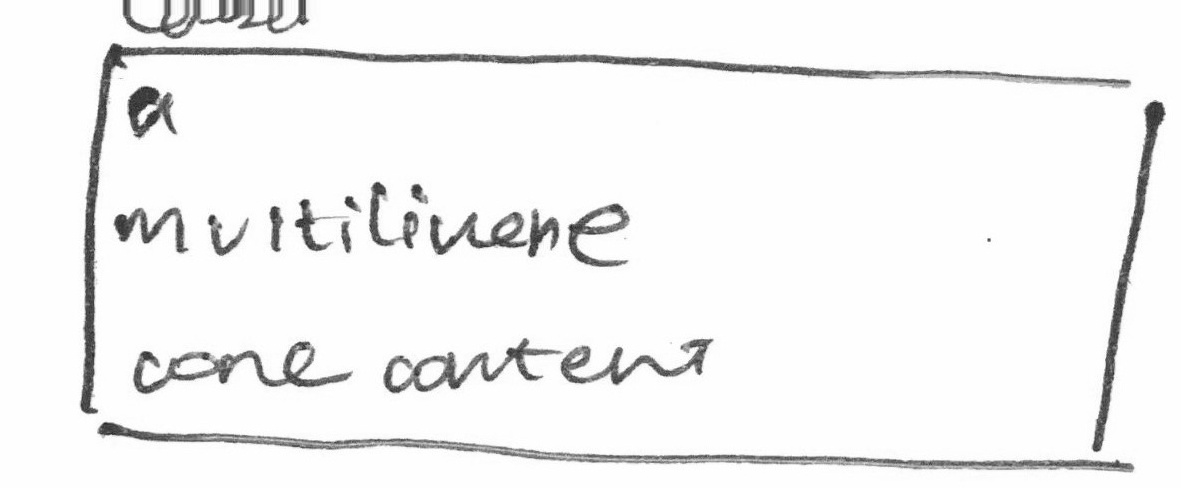 a
multilinene
cone content